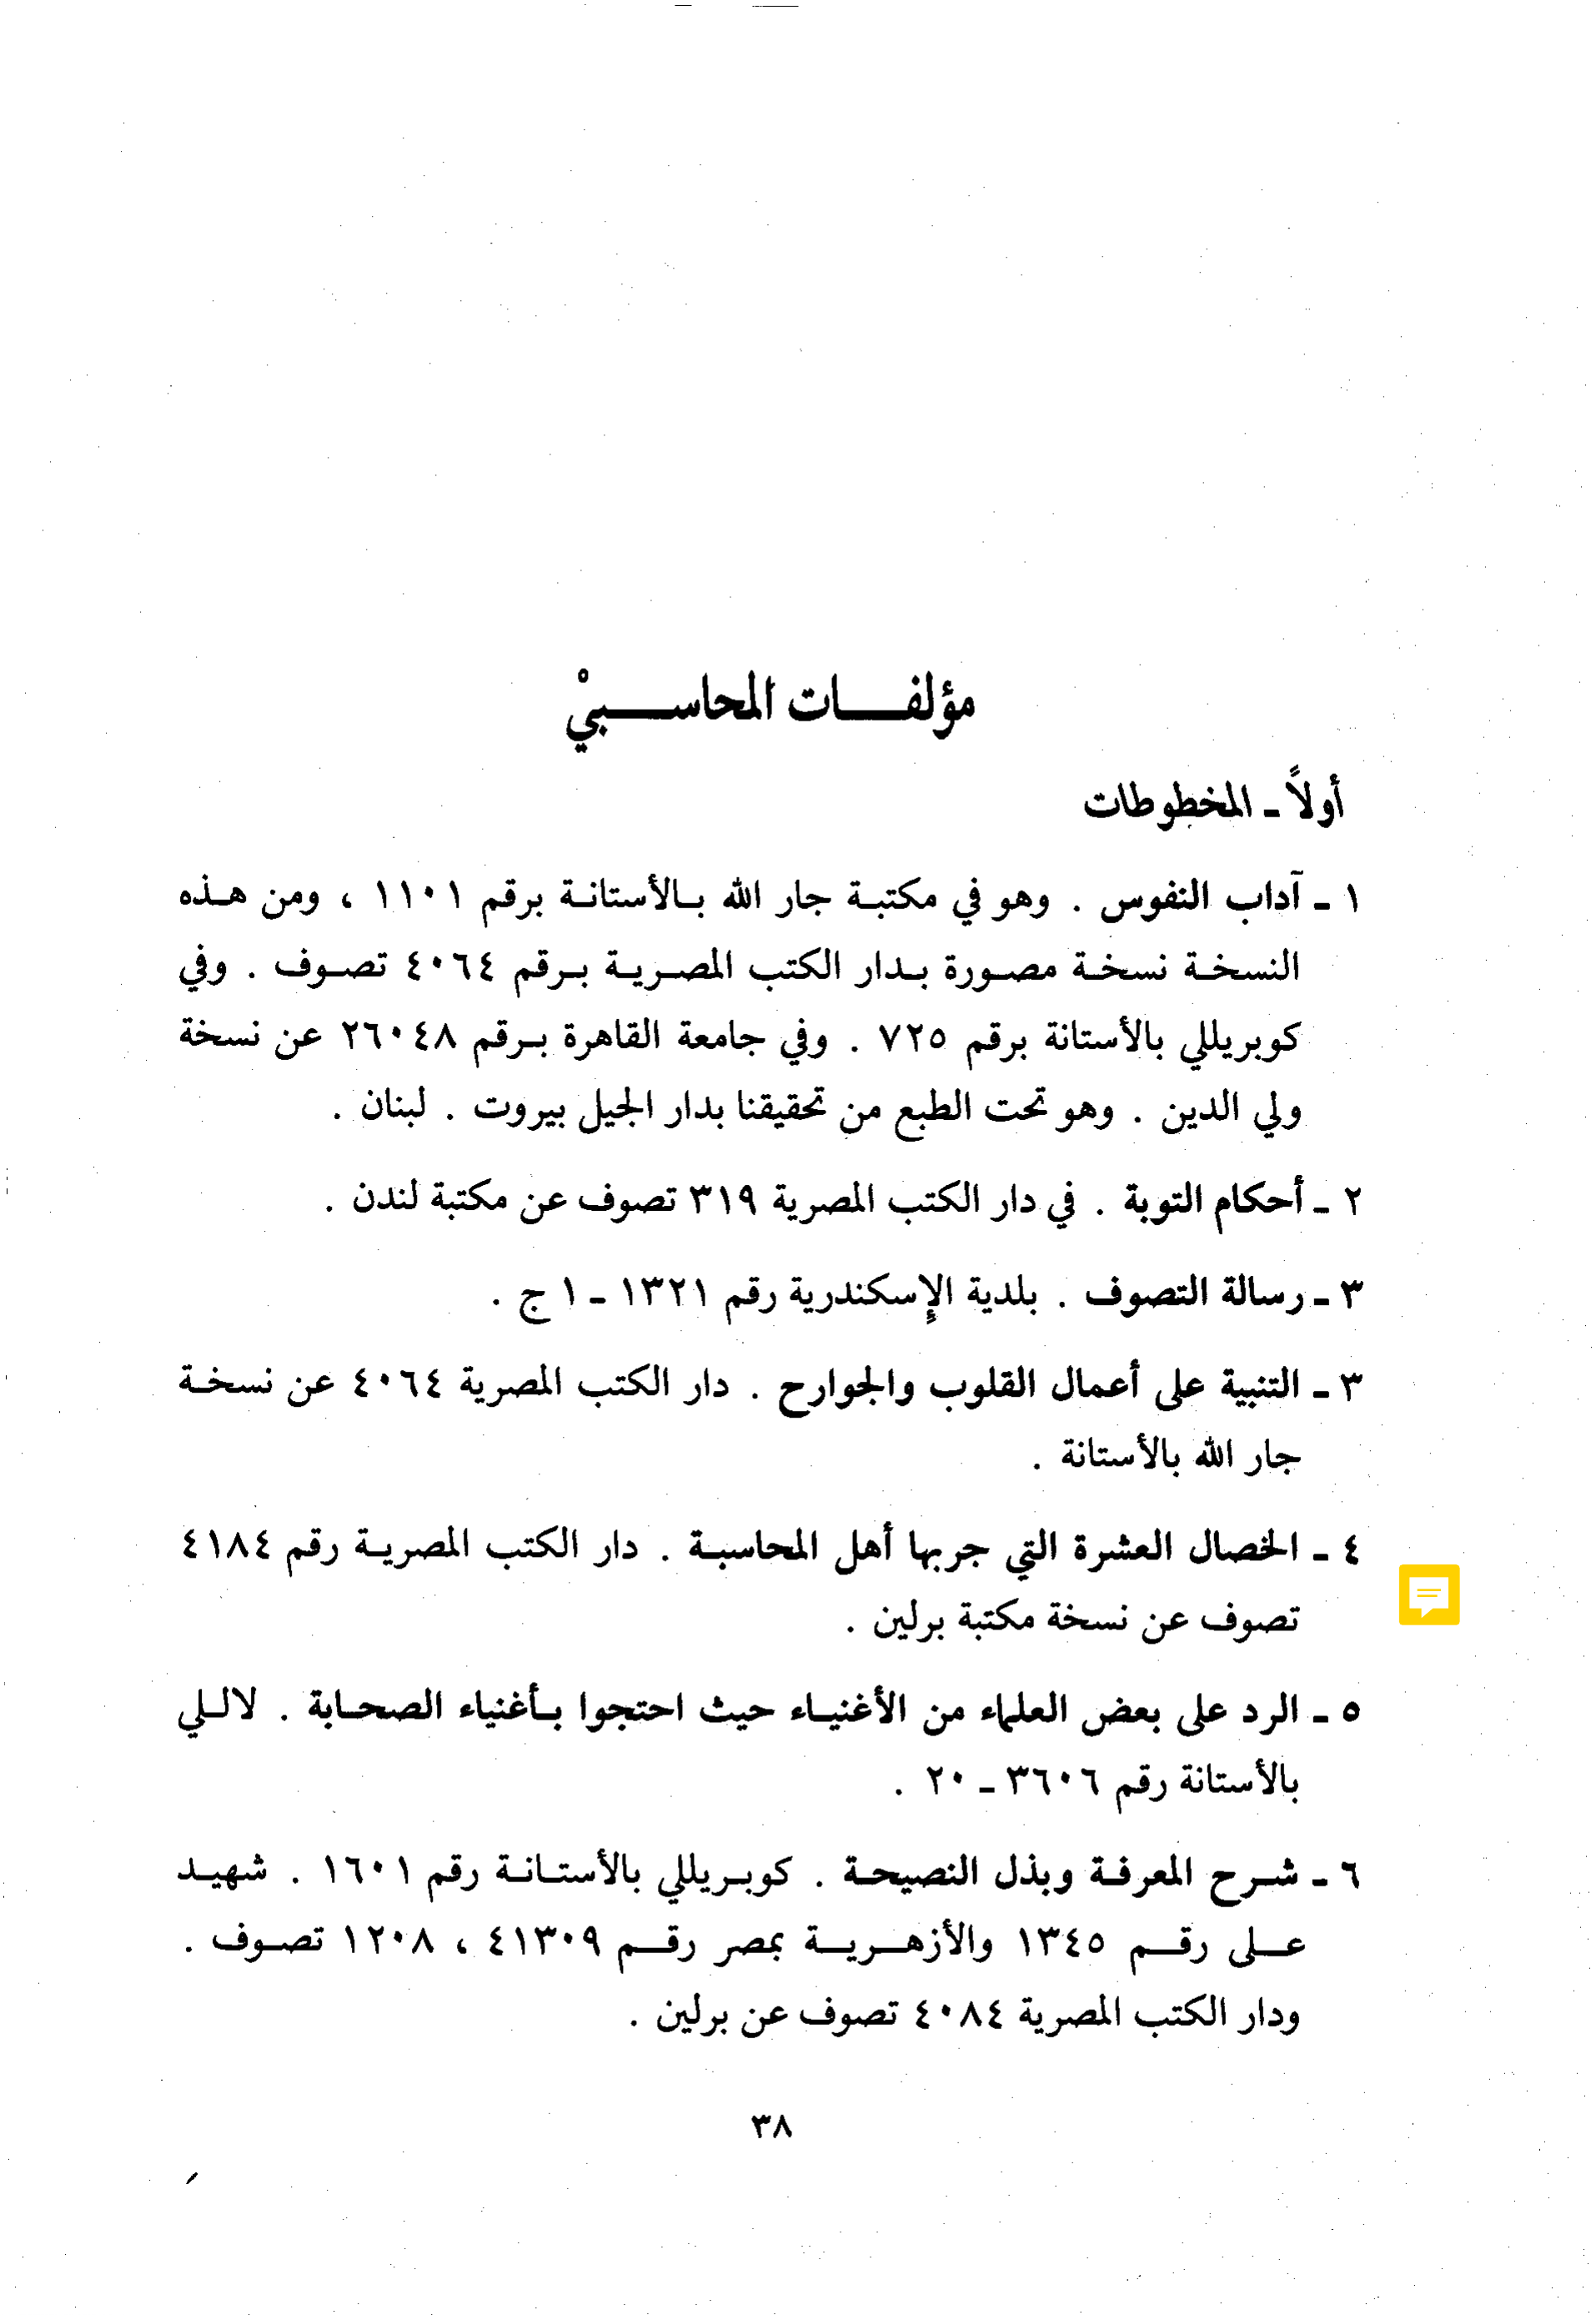 مؤلفات المحاسبيْ
أولاً ـ المخطوطات
١ ـ آداب النفوس . وهو في مكتبة جار الله بالأستانة برقم ١١٠١ ، ومن هذه
النسخة نسخة مصورة بدار الكتب المصرية برقم ٤٠٦٤ تصوف . وفي
كوبريللي بالأستانة برقم ٧٢٥ . وفي جامعة القاهرة برقم ٢٦٠٤٨ عن نسخة
ولي الدين . وهو تحت الطبع من تحقيقنا بدار الجيل بيروت . لبنان .
٢ ـ أحكام التوبة . في دار الكتب المصرية ٣١٩ تصوف عن مكتبة لندن .
٣ ـ رسالة التصوف . بلدية الإسكندرية رقم ١٣٢١ ـ ١ ج .
٣ ـ التنبية على أعمال القلوب والجوارح . دار الكتب المصرية ٤٠٦٤ عن نسخة
جار الله بالأستانة .
٤ ـ الخصال العشرة التي جربها أهل المحاسبة . دار الكتب المصرية رقم ٤١٨٤
تصوف عن نسخة مكتبة برلين .
٥ ـ الرد على بعض العلماء من الأغنياء حيث احتجوا بأغنياء الصحابة . لالـلي
بالأستانة رقم ٣٦٠٦ ـ ٢٠ .
٦ ـ شرح المعرفة وبذل النصيحة . كوبريللي بالأستانة رقم ١٦٠١ . شهيد
على رقم ١٣٤٥ والأزهرية بمصر رقم ٤١٣٠٩ ، ١٢٠٨ تصوف .
ودار الكتب المصرية ٤٠٨٤ تصوف عن برلين .
٣٨